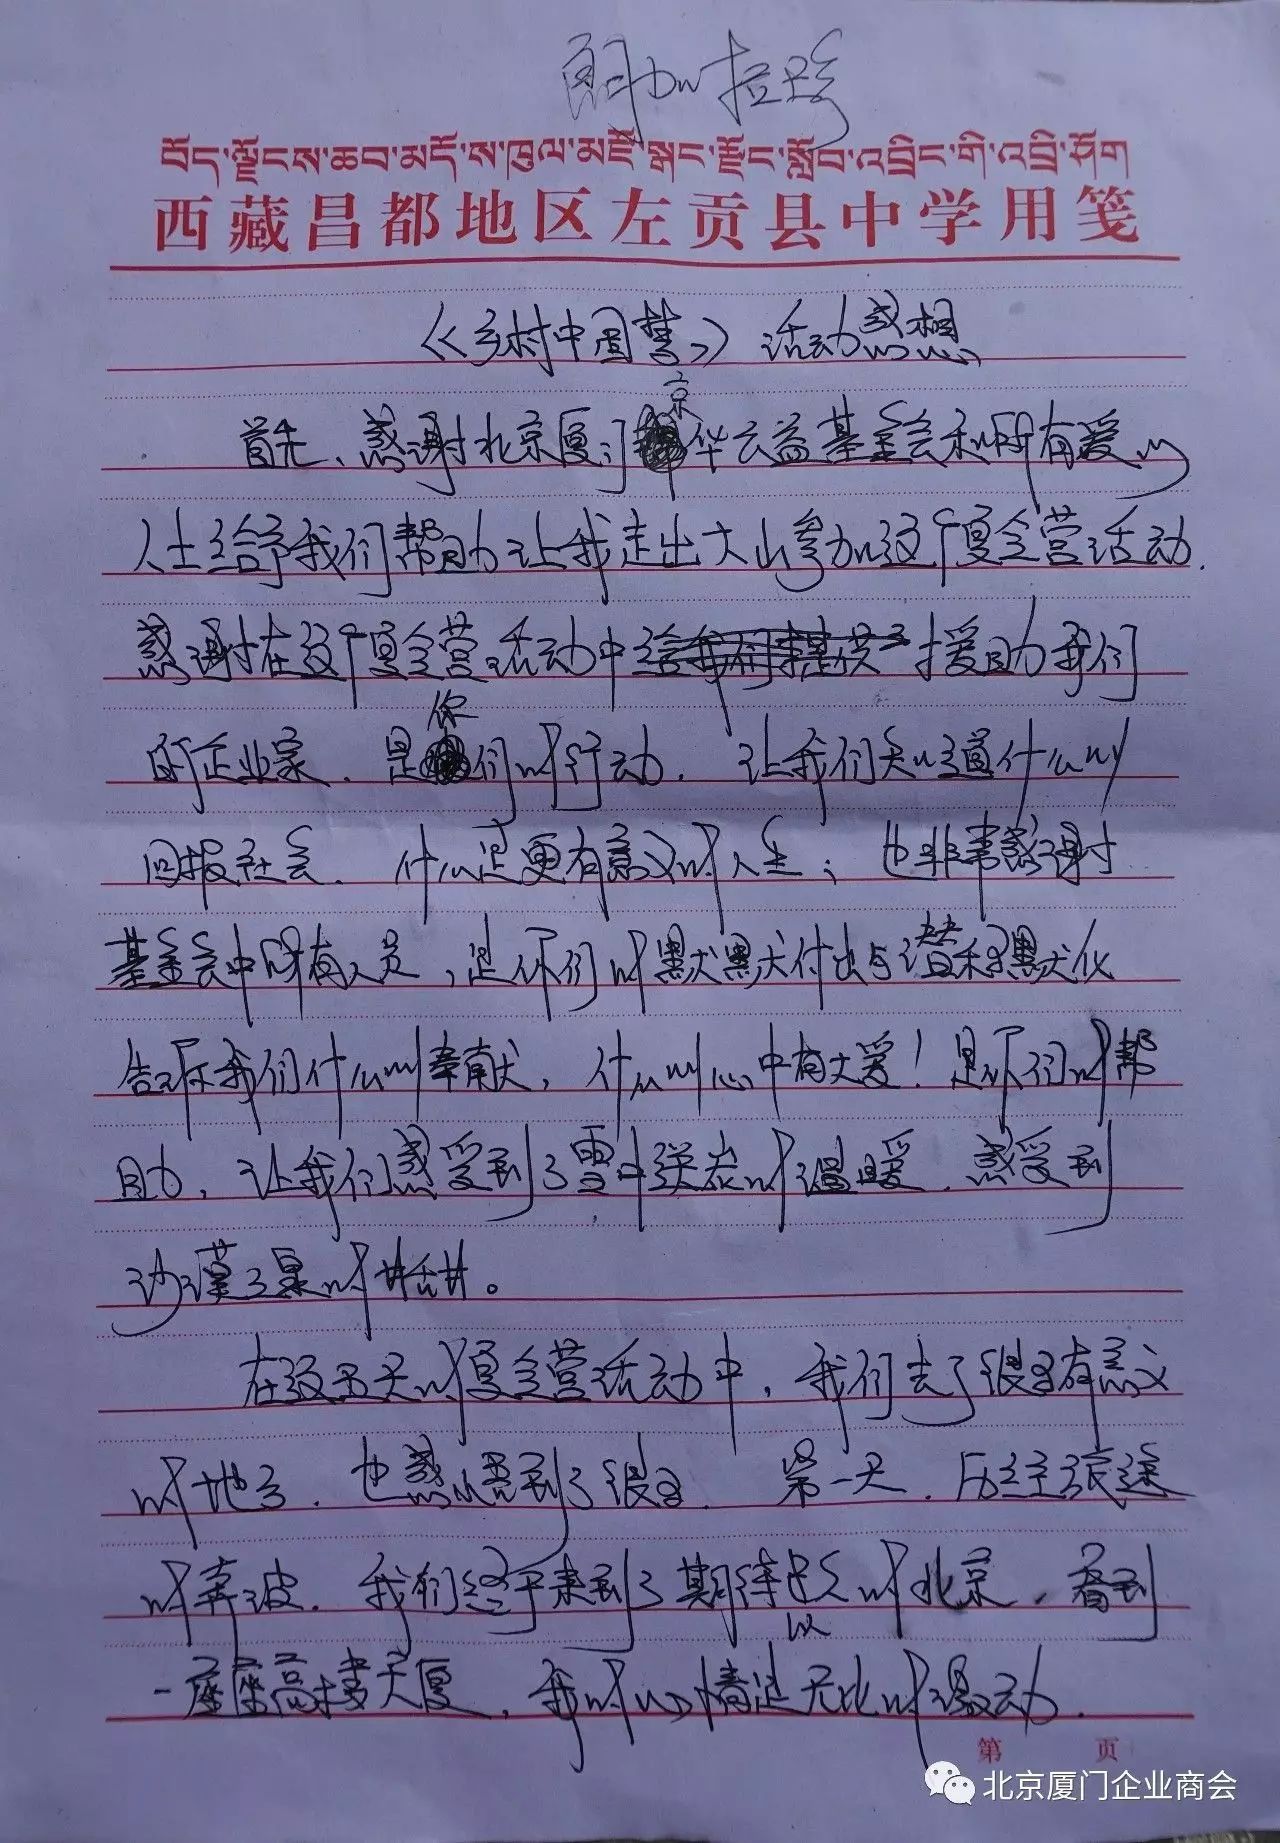 བོད་ལྗོངས་ཆབ་མདོ་ས་ཁུལ་མཛོ་སྒང་རྫོང་སློབ་འབྲིང་གི་འབྲི་ཤོག
西藏昌都地区左贡县中学用笺
《乡村中国梦》活动感想
京
首先、感谢北京厦门华公益基金会和所有爱心
人士给予我们帮助让我走出大山参加这个夏令营活动.
感谢在这个夏令营活动中给我们提供了援助我们
你
的企业家、是们的行动.让我们知道什么叫
回报社会.什么是更有意义的人生；也非常感谢
基金会中所有人员,是你们的默默付出与潜移默化
告诉我们什么叫奉献,什么叫心中有大爱!是你们的帮
助,让我们感受到了雪中送炭的温暖.感受到
沙漠之泉的甘甜。
在这五天的夏令营活动中,我们去了很多有意义
的地方.也感悟到了很多.第一天.历经旅途
的奔波.我们终于来到了期待已久的北京.看到
以
一座座高楼大厦,我的心情是无比的激动.
第 页
北京厦门企业商会